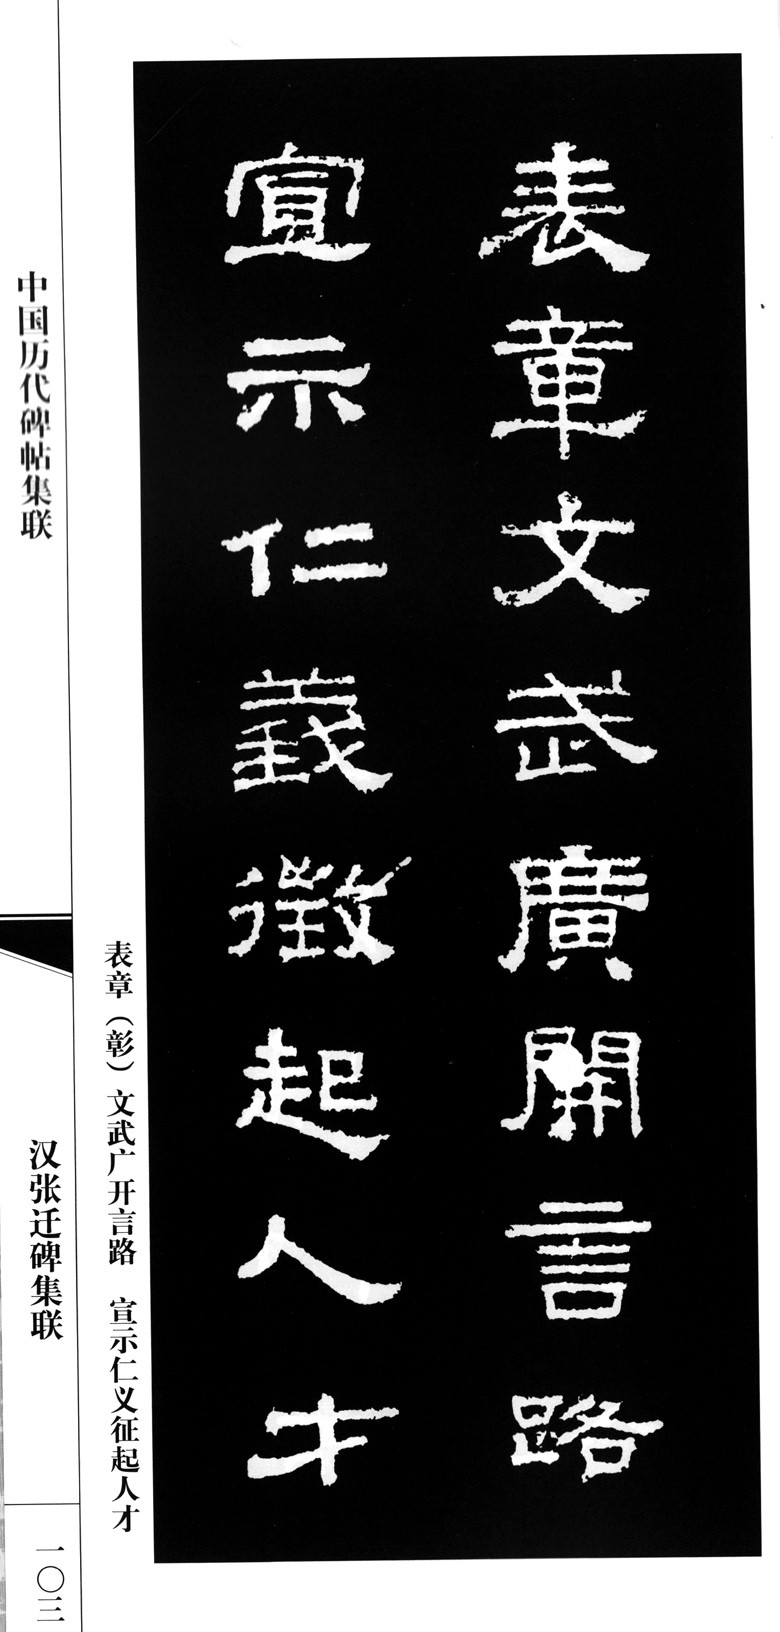 表章文武廣開言路
宣示仁義徵起人才
表章（彰）文武广开言路　宣示仁义征起人才
中国历代碑帖集联
汉张迁碑集联
一〇三